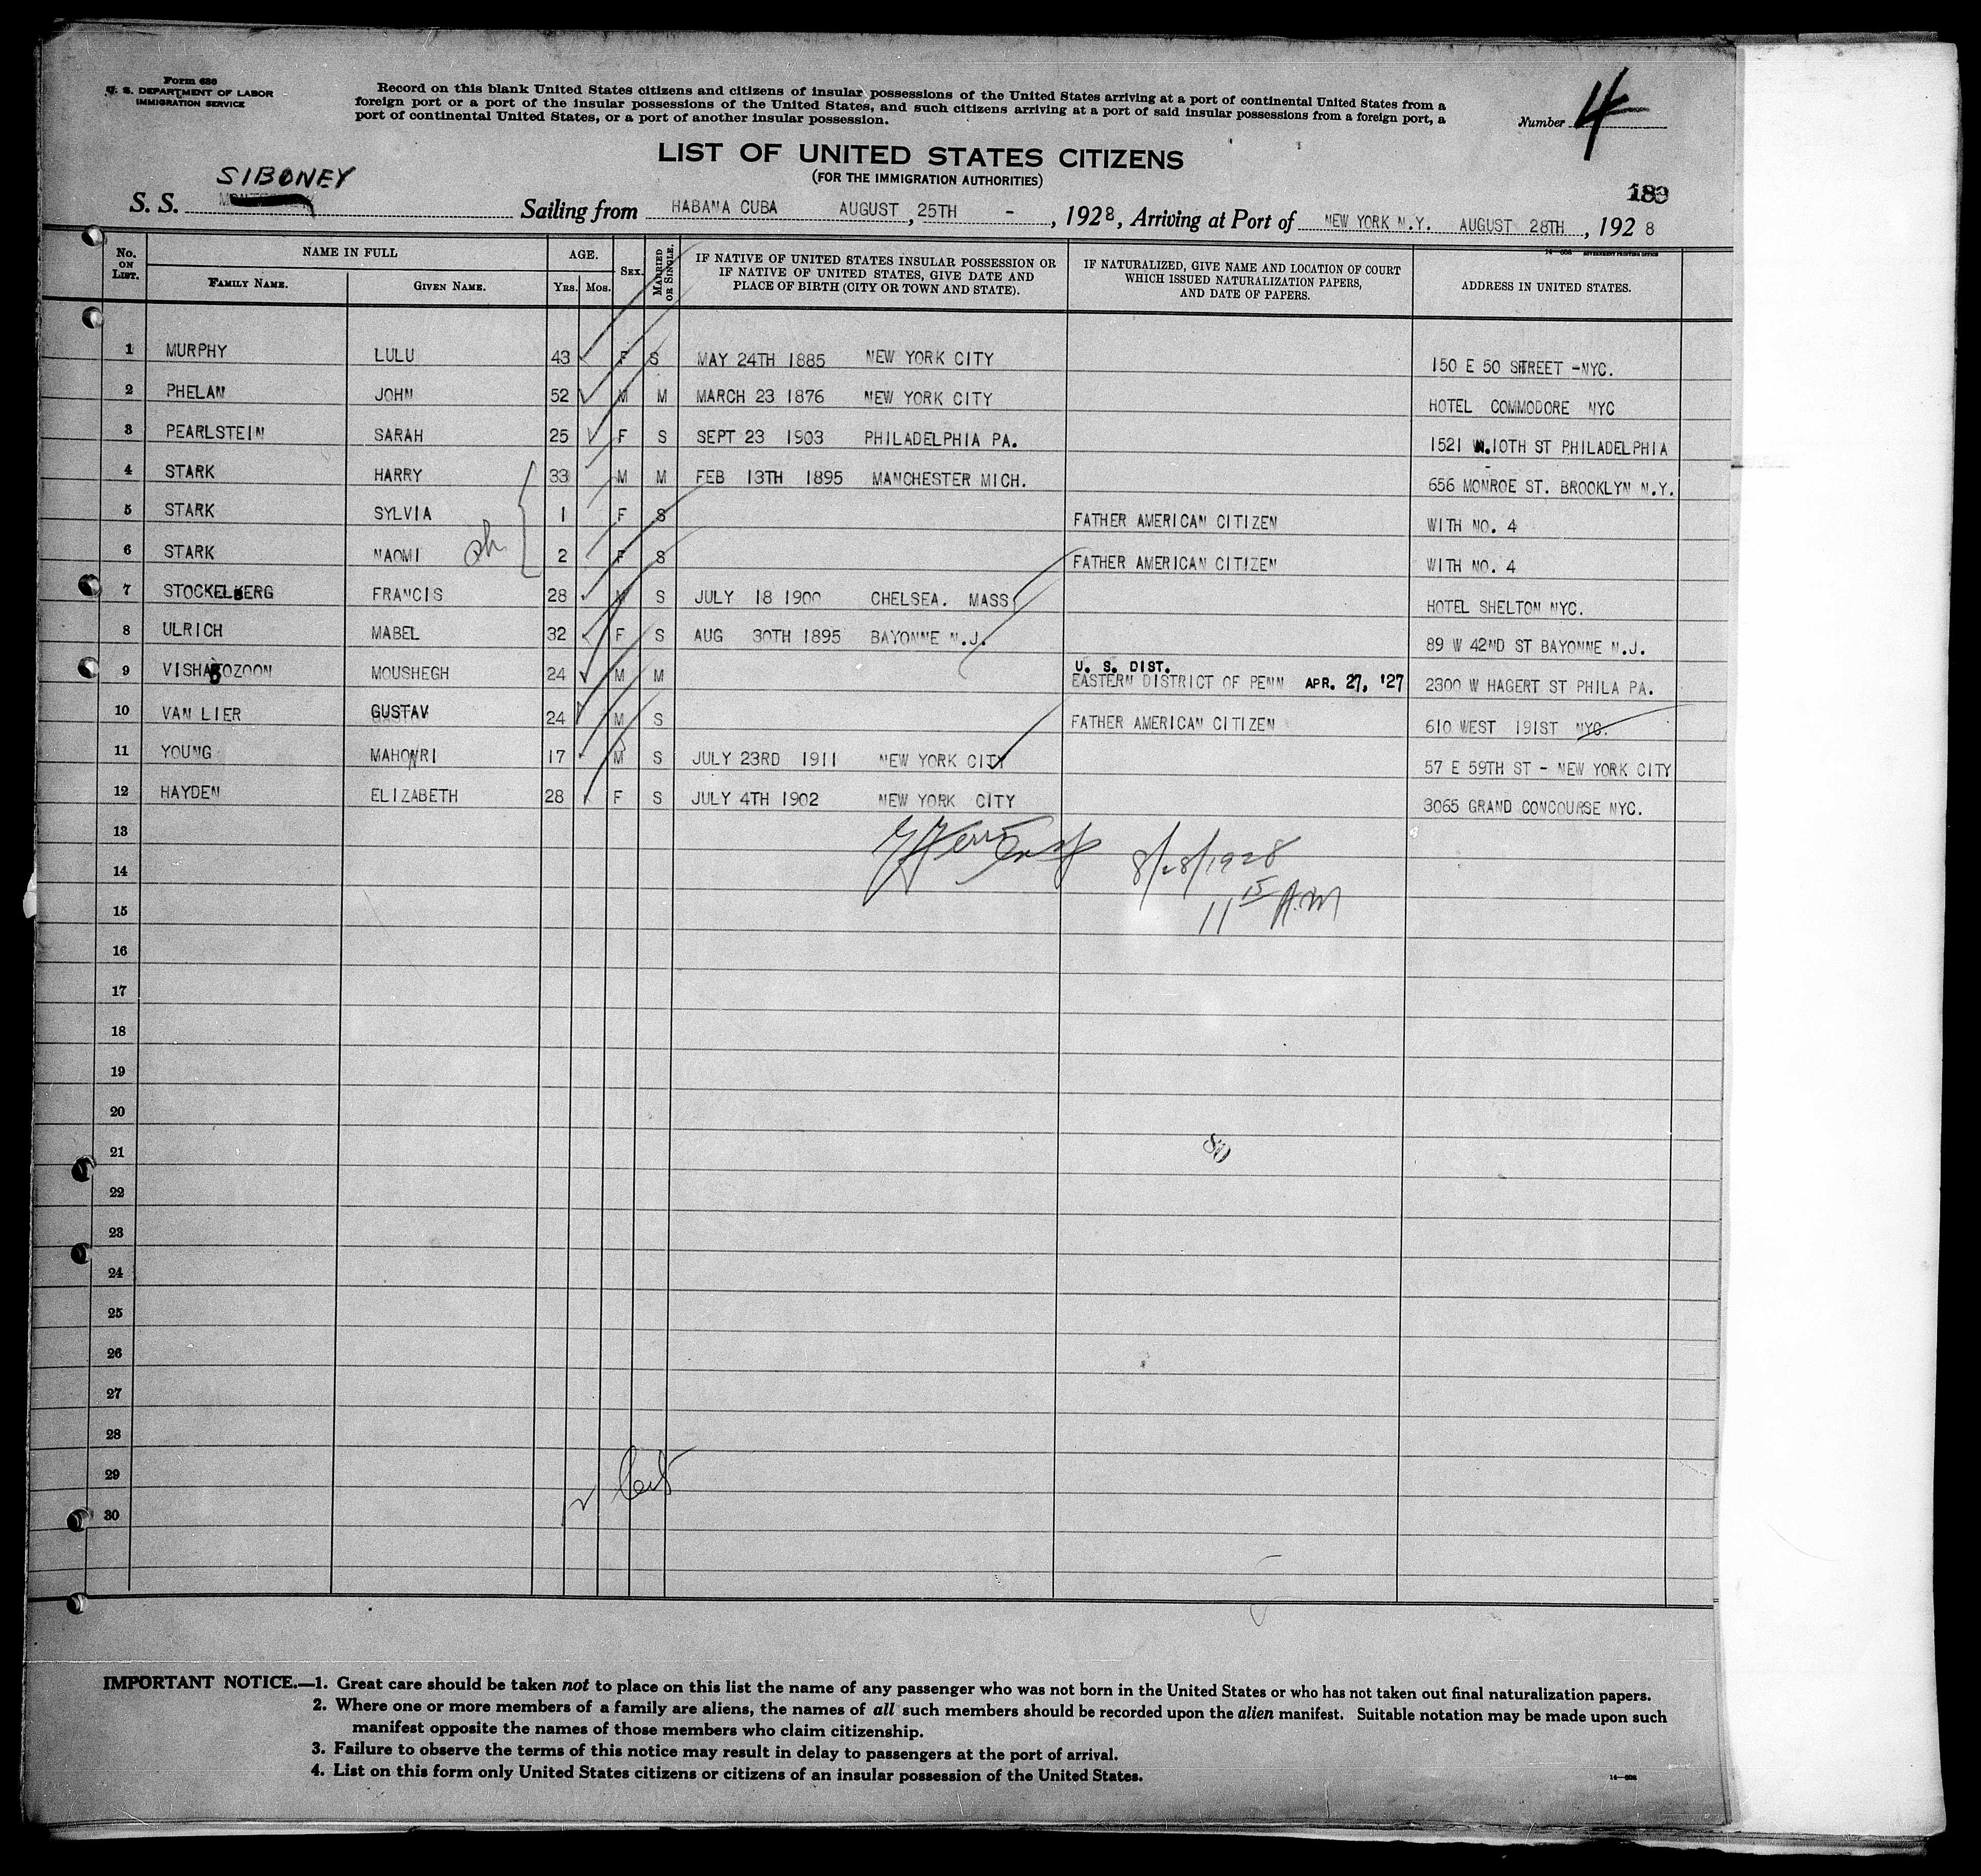 Form 630
U. S. DEPARTMENT OF LABOR
IMMIGRATION SERVICE
Record on this blank United States citizens and citizens of insular possessions of the United States arriving at a port of continental United States from a
foreign port or a port of the insular possessions of the United States, and such citizens arriving at a port of said insular possessions from a foreign port, a
port of continental United States, or a port of another insular possession.
Number 4
LIST OF UNITED STATES CITIZENS
(FOR THE IMMIGRATION AUTHORITIES)
SIBONEY
S. S. Sailing from HABANA CUBA AUGUST, 25TH - , 1928, Arriving at Port of NEW YORK N.Y. AUGUST 28TH, 1928
No. ON LIST. NAME IN FULL AGE. SEX. MARRIED OR SINGLE. IF NATIVE OF UNITED STATES INSULAR POSSESSION OR IF NATIVE OF UNITED STATES, GIVE DATE AND PLACE OF BIRTH (CITY OR TOWN AND STATE). IF NATURALIZED, GIVE NAME AND LOCATION OF COURT WHICH ISSUED NATURALIZATION PAPERS, AND DATE OF PAPERS. ADDRESS IN UNITED STATES.
FAMILY NAME. GIVEN NAME. Yrs. Mos.
1 MURPHY LULU 43 F S MAY 24TH 1885 NEW YORK CITY 150 E 50 STREET -NYC.
2 PHELAN JOHN 52 M M MARCH 23 1876 NEW YORK CITY HOTEL COMMODORE NYC
3 PEARLSTEIN SARAH 25 F S SEPT 23 1903 PHILADELPHIA PA. 1521 N.10TH ST PHILADELPHIA
4 STARK HARRY 33 M M FEB 13TH 1895 MANCHESTER MICH. 656 MONROE ST. BROOKLYN N.Y.
5 STARK SYLVIA 1 F S FATHER AMERICAN CITIZEN WITH NO. 4
6 STARK NAOMI 2 F S FATHER AMERICAN CITIZEN WITH NO. 4
7 STOCKELBERG FRANCIS 28 M S JULY 18 1900 CHELSEA. MASS HOTEL SHELTON NYC.
8 ULRICH MABEL 32 F S AUG 30TH 1895 BAYONNE N.J. 89 W 42ND ST BAYONNE N.J.
9 VISHABOZOON MOUSHEGH 24 M M U. S. DIST. EASTERN DISTRICT OF PENN APR. 27, '27 2300 W HAGERT ST PHILA PA.
10 VAN LIER GUSTAV 24 M S FATHER AMERICAN CITIZEN 610 WEST 191ST NYC.
11 YOUNG MAHONRI 17 M S JULY 23RD 1911 NEW YORK CITY 57 E 59TH ST - NEW YORK CITY
12 HAYDEN ELIZABETH 28 F S JULY 4TH 1902 NEW YORK CITY 3065 GRAND CONCOURSE NYC.
13
14 8/28/1928
15 11 15 A.M
16
17
18
19
20
21 80
22
23
24
25
26
27
28
29
30
IMPORTANT NOTICE.—1. Great care should be taken not to place on this list the name of any passenger who was not born in the United States or who has not taken out final naturalization papers.
2. Where one or more members of a family are aliens, the names of all such members should be recorded upon the alien manifest. Suitable notation may be made upon such
manifest opposite the names of those members who claim citizenship.
3. Failure to observe the terms of this notice may result in delay to passengers at the port of arrival.
4. List on this form only United States citizens or citizens of an insular possession of the United States.